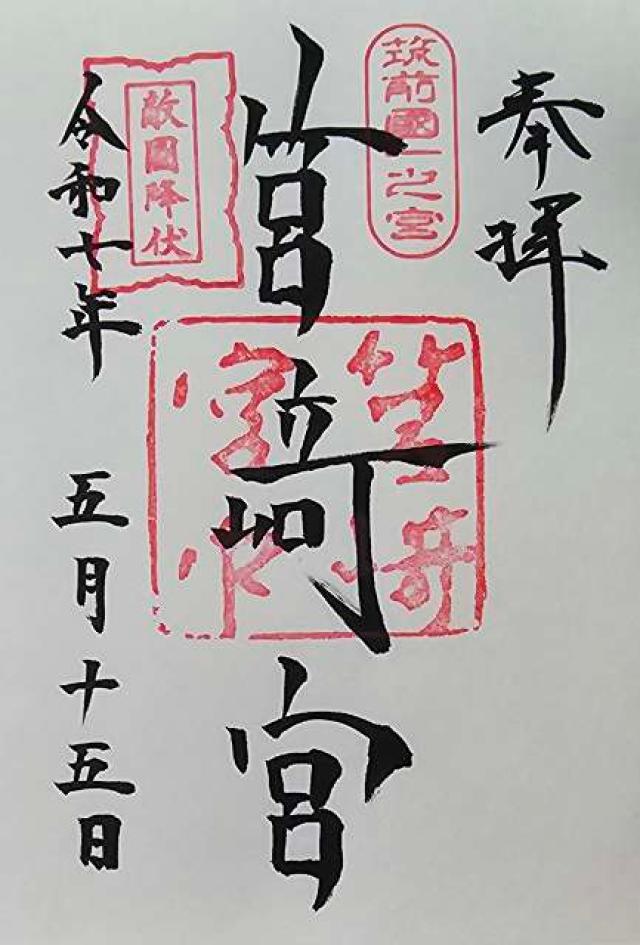 奉拝
筑前國一之宮
筥﨑宮
筥崎
宮印
敵國降伏
令和七年 五月十五日